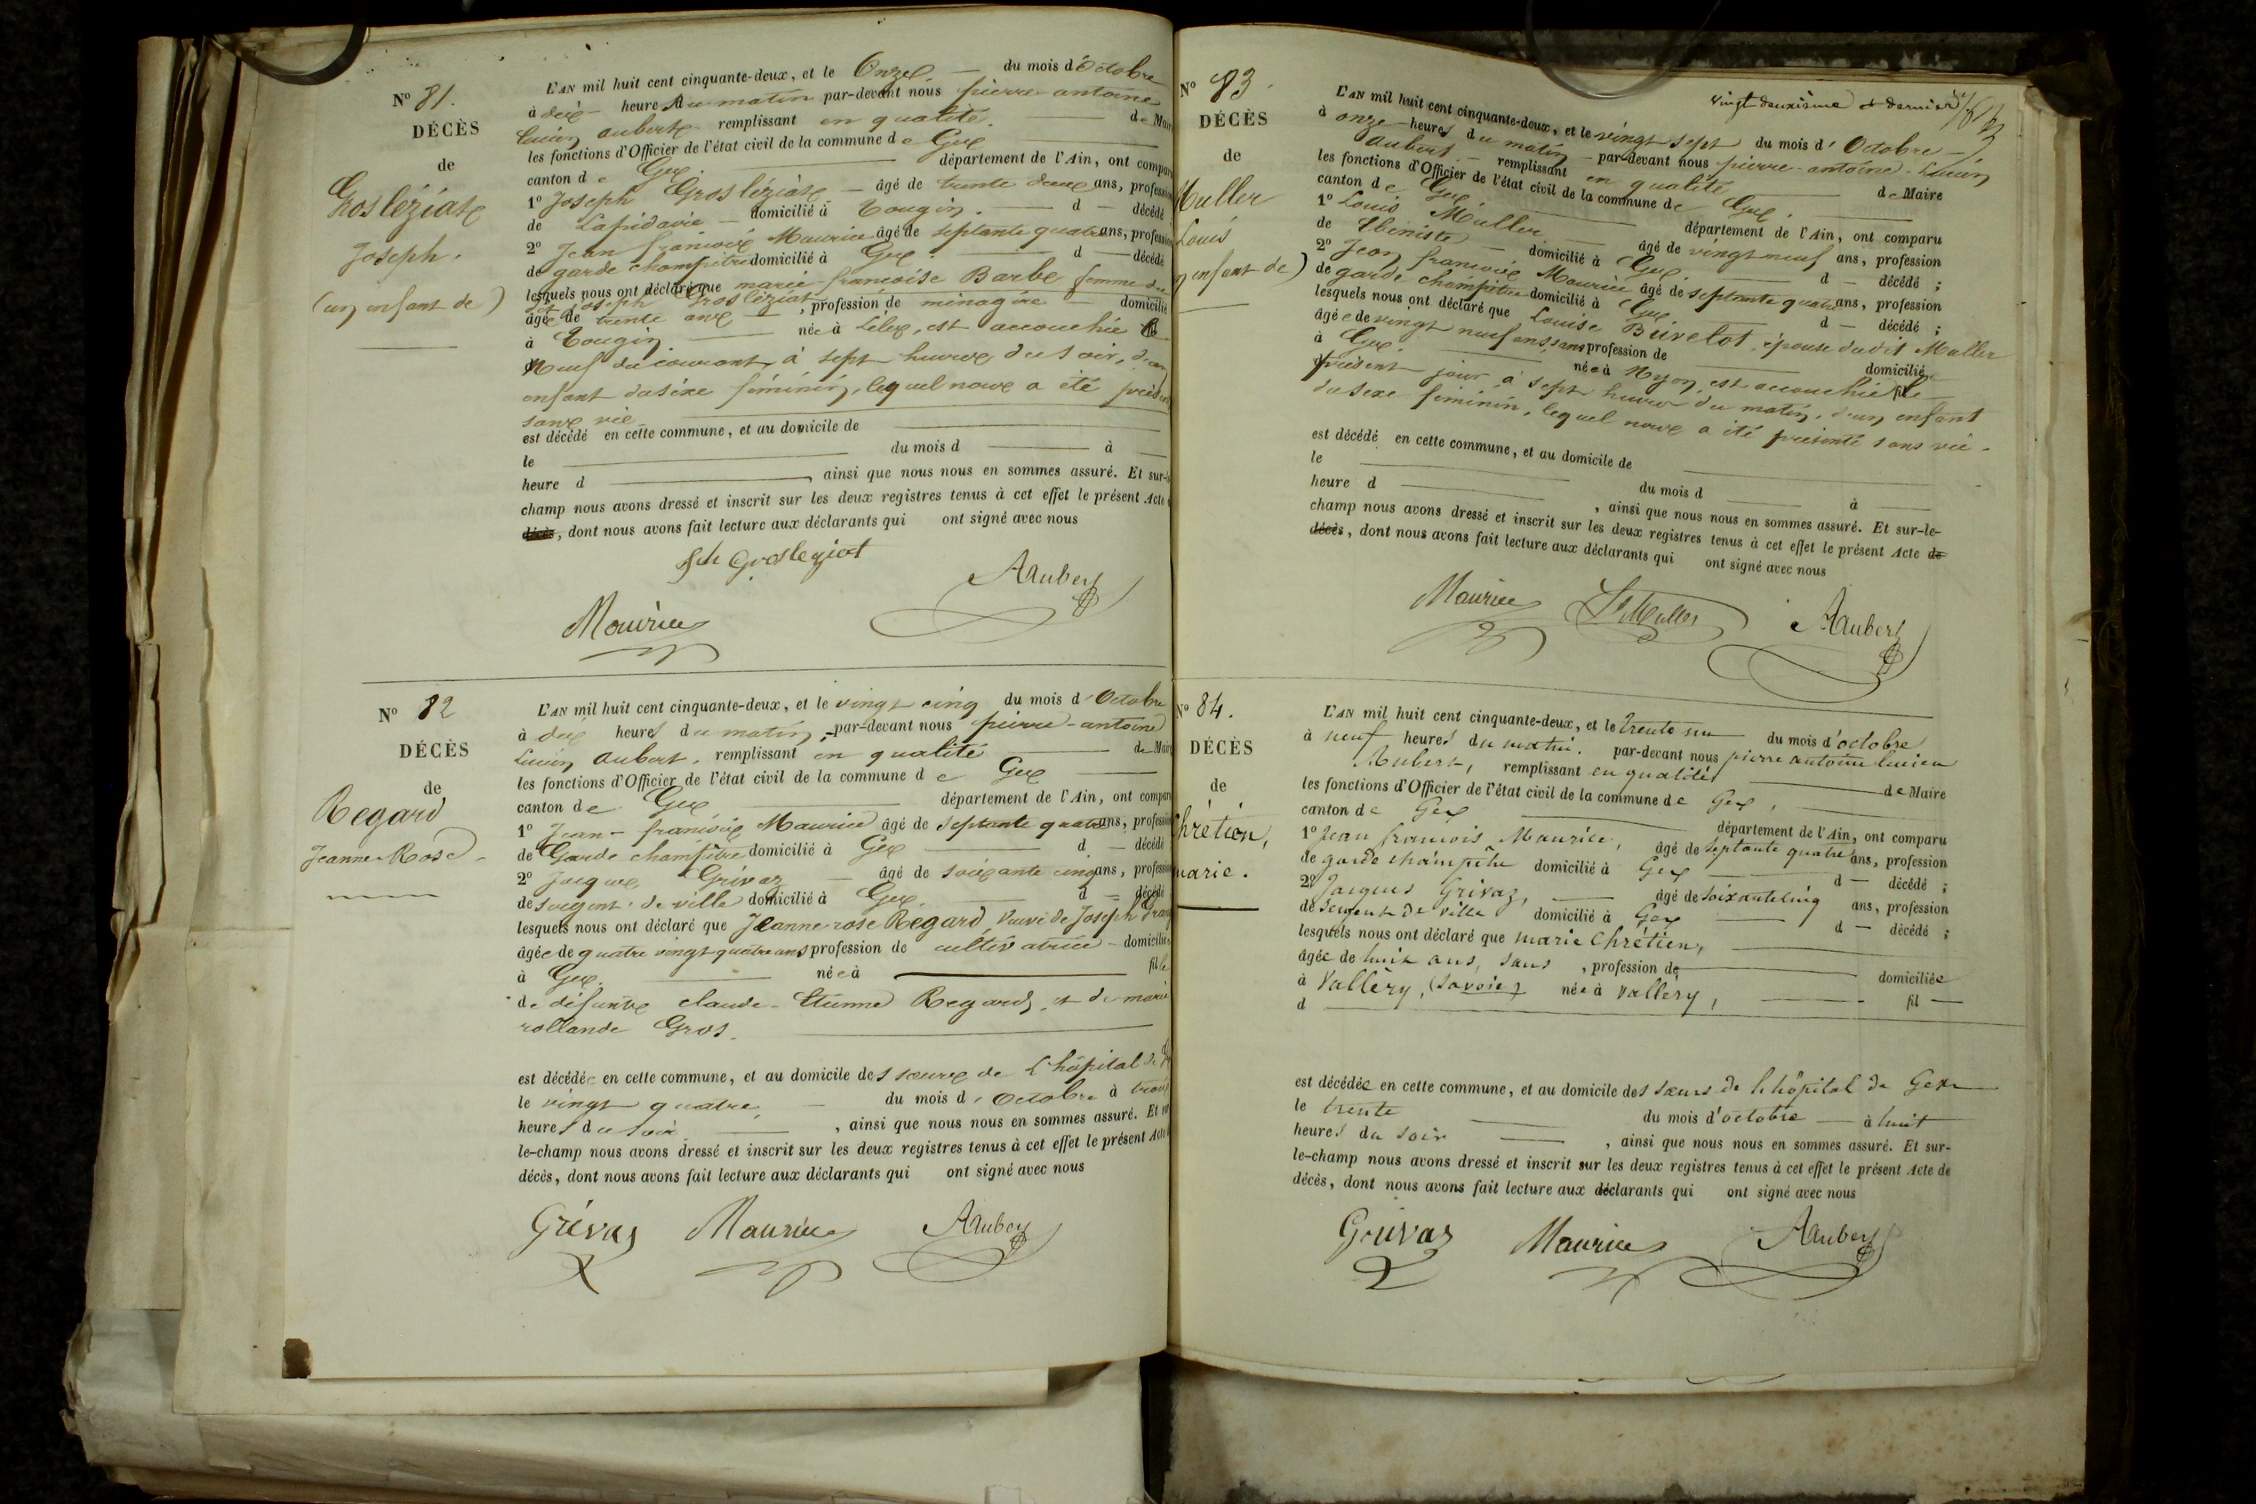 N° 81.
DÉCÈS
de
Grosléziat
Joseph.
(un enfant de)
L'AN mil huit cent cinquante-deux, et le Onze du mois d'Octobre
à dix heures du matin par-devant nous pierre antoine
Lucien aubert remplissant en qualité de Maire
les fonctions d'Officier de l'état civil de la commune de Gex
canton de Gex. département de l'Ain, ont comparu
1° Joseph Grosléziat âgé de trente deux ans, profession
de Lapidaire domicilié à Tougin. d décédé
2° Jean françois Maurice âgé de septante quatre ans, profession
de garde champêtre domicilié à Gex. d décédé
lesquels nous ont déclaré que marie françoise Barbe femme du
dit joseph Grosléziat, profession de ménagère domicilié
âgée de trente ans
à Tougin. née à Lélex, est accouchée le
Neuf du courant à sept heures du soir, d'un
enfant du sexe féminin, lequel nous a été présenté
sans vie
est décédé en cette commune, et au domicile de
le du mois d à
heure d , ainsi que nous nous en sommes assuré. Et sur-le
champ nous avons dressé et inscrit sur les deux registres tenus à cet effet le présent Acte
décès, dont nous avons fait lecture aux déclarants qui ont signé avec nous
Jph Grosleziat
Maurice
AAubert
N° 82
DÉCÈS
de
Regard
Jeanne-Rose
L'AN mil huit cent cinquante-deux, et le vingt cinq du mois d'Octobre
à dix heures du matin, par-devant nous pierre-antoine
Lucien aubert. remplissant en qualité de Maire
les fonctions d'Officier de l'état civil de la commune de Gex
canton de Gex département de l'Ain, ont comparu
1° Jean-françois Maurice âgé de septante quatre ans, profession
de Garde champêtre domicilié à Gex d décédé
2° Jacques Grivaz âgé de soixante cinq ans, profession
de sergent de ville domicilié à Gex. d décédé
lesquels nous ont déclaré que Jeanne rose Regard, veuve de Joseph
âgée de quatre vingt quatre ans profession de cultivatrice domiciliée
à Gex. née à fille
de défunts claude-Etienne Regard, et de marie
rollande Gros.
est décédée en cette commune, et au domicile des sœurs de l'hôpital de
le vingt quatre, du mois d'Octobre à trois
heures du soir , ainsi que nous nous en sommes assuré. Et sur
le-champ nous avons dressé et inscrit sur les deux registres tenus à cet effet le présent Acte
décès, dont nous avons fait lecture aux déclarants qui ont signé avec nous
Grivas Maurice AAubert
vingt deuxième et dernier
N° 83.
DÉCÈS
de
Muller
Louis
(un enfant de)
L'AN mil huit cent cinquante-deux, et le vingt sept du mois d'Octobre
à onze heures du matin par-devant nous pierre-antoine-Lucien
aubert remplissant en qualité de Maire
les fonctions d'Officier de l'état civil de la commune de Gex.
canton de Gex département de l'Ain, ont comparu
1° Louis Muller âgé de vingt neuf ans, profession
de Ebéniste domicilié à Gex. d décédé ;
2° Jean françois Maurice âgé de septante quatre ans, profession
de garde champêtre domicilié à Gex d décédé ;
lesquels nous ont déclaré que Louise Buvelot, épouse dudit Muller
âgée de vingt neuf ans, sans profession de domiciliée
à Gex. née à Nyon, est accouchée le
présent jour à sept heures du matin, d'un enfant
du sexe féminin, lequel nous a été présenté sans vie.
est décédé en cette commune, et au domicile de
le du mois d à
heure d , ainsi que nous nous en sommes assuré. Et sur-le-
champ nous avons dressé et inscrit sur les deux registres tenus à cet effet le présent Acte de
décès, dont nous avons fait lecture aux déclarants qui ont signé avec nous
Maurice Ls Muller AAubert
N° 84.
DÉCÈS
de
Chrétien,
marie.
L'AN mil huit cent cinquante-deux, et le trente un du mois d'octobre
à neuf heures du matin. par-devant nous pierre antoine lucien
Aubert, remplissant en qualité de Maire
les fonctions d'Officier de l'état civil de la commune de Gex,
canton de Gex département de l'Ain, ont comparu
1° Jean françois Maurice, âgé de septante quatre ans, profession
de garde champêtre domicilié à Gex d décédé ;
2° Jacques Grivaz, âgé de soixante cinq ans, profession
de sergent de ville domicilié à Gex d décédé ;
lesquels nous ont déclaré que marie Chrétien,
âgée de huit ans, sans , profession de domiciliée
à Vallery, (Savoie) née à Vallery, fil
d
est décédée en cette commune, et au domicile des sœurs de l'hôpital de Gex
le trente du mois d'octobre à huit
heures du soir , ainsi que nous nous en sommes assuré. Et sur-
le-champ nous avons dressé et inscrit sur les deux registres tenus à cet effet le présent Acte de
décès, dont nous avons fait lecture aux déclarants qui ont signé avec nous
Grivas Maurice AAubert